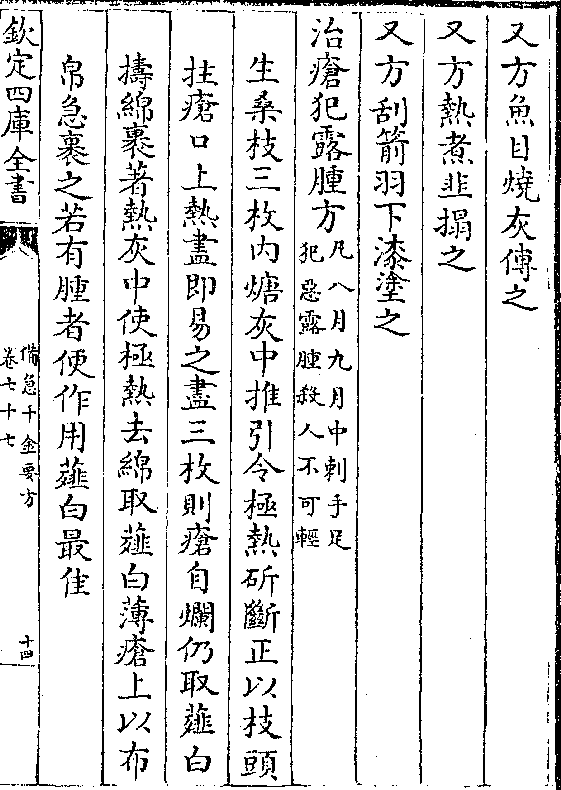 又方魚目燒灰傅之
又方熱煮韭搨之
又方刮箭羽下漆塗之
治瘡犯露腫方凡八月九月中刺手足犯惡露腫殺人不可輕
生桑枝三枚內煻灰中推引令極熱斫斷正以枝頭
拄瘡口上熱盡即易之盡三枚則瘡自爛仍取薤白
擣綿裹著熱灰中使極熱去綿取薤白薄瘡上以布
帛急裹之若有腫者便作用薤白最佳
欽定四庫全書
備急千金要方
卷七十七
十四